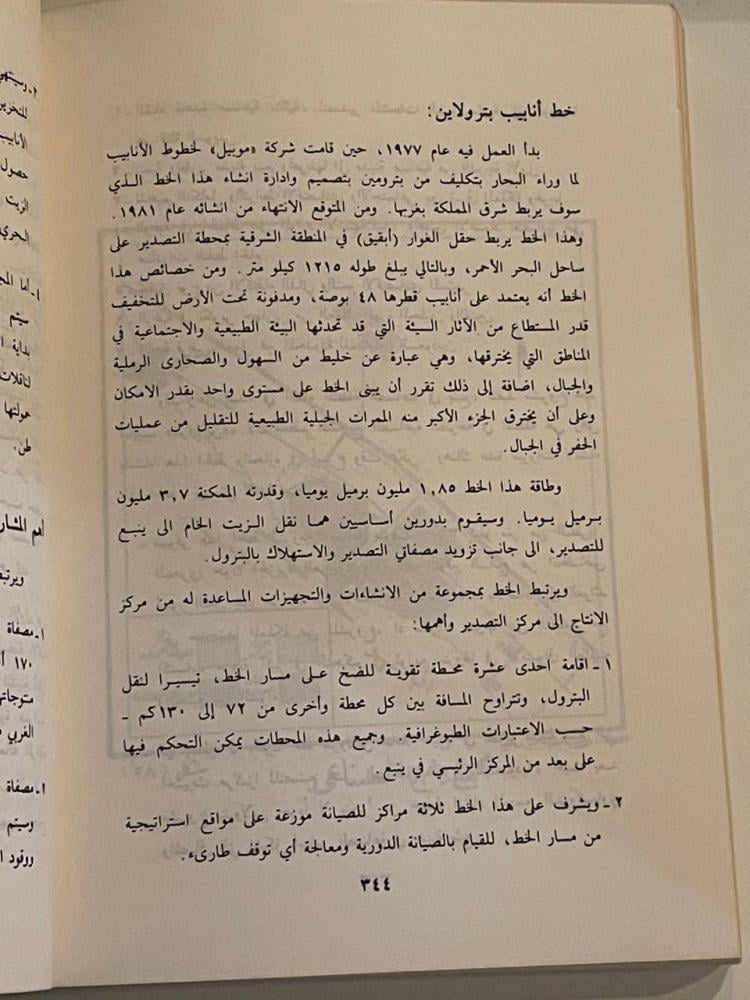 خط أنابيب بترولاين:
بدأ العمل فيه عام ١٩٧٧، حين قامت شركة «موبيل» لخطوط الأنابيب
لما وراء البحار بتكليف من بترومين بتصميم وادارة انشاء هذا الخط الذي
سوف يربط شرق المملكة بغربها. ومن المتوقع الانتهاء من انشائه عام ١٩٨١.
وهذا الخط يربط حقل الغوار (أبقيق) في المنطقة الشرقية بمحطة التصدير على
ساحل البحر الأحمر، وبالتالي يبلغ طوله ١٢١٥ كيلو متر. ومن خصائص هذا
الخط أنه يعتمد على أنابيب قطرها ٤٨ بوصة، ومدفونة تحت الأرض للتخفيف
قدر المستطاع من الآثار السيئة التي قد تحدثها البيئة الطبيعية والاجتماعية في
المناطق التي يخترقها، وهي عبارة عن خليط من السهول والصحارى الرملية
والجبال، اضافة إلى ذلك تقرر أن يبنى الخط على مستوى واحد بقدر الامكان
وعلى أن يخترق الجزء الأكبر منه الممرات الجبلية الطبيعية للتقليل من عمليات
الحفر في الجبال.
وطاقة هذا الخط ١,٨٥ مليون برميل يوميا، وقدرته الممكنة ٣,٧ مليون
برميل يوميا. وسيقوم بدورين أساسيين هما نقل الزيت الخام الى ينبع
للتصدير، الى جانب تزويد مصفاتي التصدير والاستهلاك بالبترول.
ويرتبط الخط بمجموعة من الانشاءات والتجهيزات المساعدة له من مركز
الانتاج الى مركز التصدير وأهمها:
١ - اقامة احدى عشرة محطة تقوية للضخ على مسار الخط، تيسيرا لنقل
البترول، وتتراوح المسافة بين كل محطة وأخرى من ٧٢ إلى ١٣٠كم -
حسب الاعتبارات الطبوغرافية. وجميع هذه المحطات يمكن التحكم فيها
على بعد من المركز الرئيسي في ينبع.
٢ - ويشرف على هذا الخط ثلاثة مراكز للصيانة موزعة على مواقع استراتيجية
من مسار الخط، للقيام بالصيانة الدورية ومعالجة أي توقف طارىء.
٣٤٤